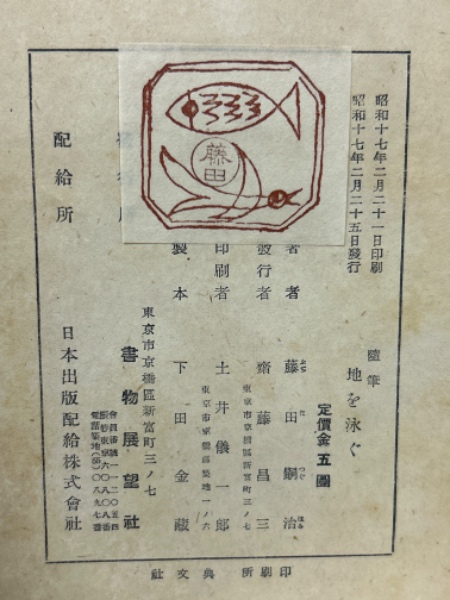 昭和十七年二月二十一日印刷
昭和十七年二月二十五日發行
隨筆 地を泳ぐ
定價金五圓
者者 藤田嗣治
ふぢ た つぐ はる
發行者 齋藤昌三
東京市京橋區新富町三ノ七
印刷者 土井儀一郎
東京市京橋區築地一ノ六
製本 下田金藏
東京市京橋區新富町三ノ七
書物展望社
配給所 日本出版配給株式會社
印刷所 典文社
藤田